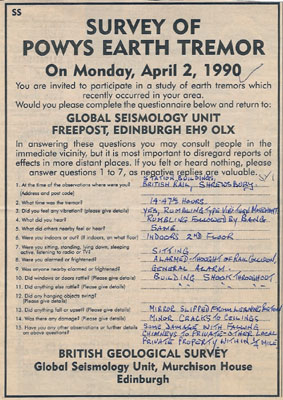 SS
SURVEY OF
POWYS EARTH TREMOR
On Monday, April 2, 1990
You are invited to participate in a study of earth tremors which
recently occurred in your area.
Would you please complete the questionnaire below and return to:
GLOBAL SEISMOLOGY UNIT
FREEPOST, EDINBURGH EH9 OLX
In answering these questions you may consult people in the
immediate vicinity, but it is most important to disregard reports of
effects in more distant places. If you felt or heard nothing, please
answer questions 1 to 7, as negative replies are valuable.
STATION BUILDINGS,
1. At the time of the observations where were you? BRITISH RAIL, SHREWSBURY.
(Address and post code)
2. What time was the tremor? 14-47 HOURS
3. Did you feel any vibration? (please give details) YES, RUMBLING TYPE VERTICAL MOVEMENT
4. What did you hear? RUMBLING FOLLOWED BY BANG
5. What did others nearby feel or hear? SAME.
6. Were you indoors or outdoors? (if indoors, on what floor) INDOORS 2ND FLOOR
7. Were you sitting, standing, lying down, sleeping
active, listening to radio or TV? SITTING
8. Were you alarmed or frightened? ALARMED THOUGHT OF RAIL COLLISION
9. Was anyone nearby alarmed or frightened? GENERAL ALARM.
10. Did windows or doors rattle? (Please give details) BUILDING SHOOK THROUGHOUT
11. Did anything else rattle? (Please give details)
12. Did any hanging objects swing?
(Please give details)
13. Did anything fall or upset? (Please give details) MIRROR SLIPPED FROM
14. Was there any damage? (Please give details) MINOR CRACKS TO CEILINGS
15. Have you any other observations or details SOME DAMAGE WITH FALLING
on above questions? CHIMNEYS TO PRIVATE + OTHER LOCAL
PRIVATE PROPERTY WITHIN 1/4 MILE
BRITISH GEOLOGICAL SURVEY
Global Seismology Unit, Murchison House
Edinburgh